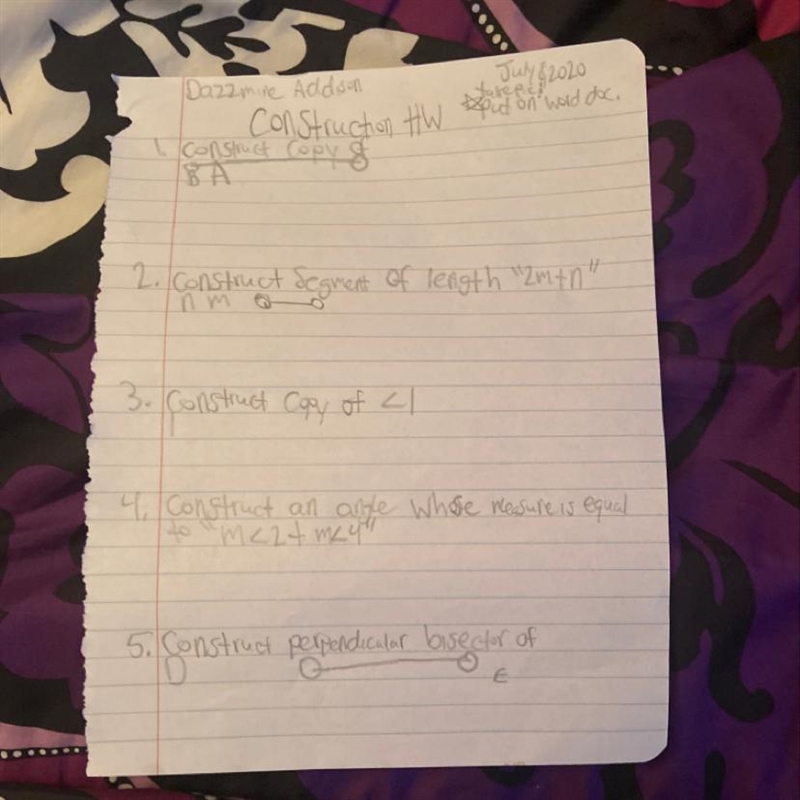 Dazzmire Addson
July 8 2020
put on word doc.
Construction HW
1. Construct Copy of
B A
2. Construct Segment of length "2m+n"
n m
3. Construct Copy of <1
4. Construct an angle whose measure is equal
to "m<2 + m<4"
5. Construct perpendicular bisector of
D
E